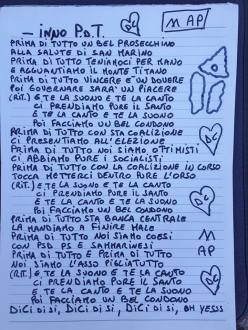 — INNO P.D.T.
MAP
PRIMA DI TUTTO UN BEL PROSECCHINO
ALLA SALUTE DI SAN MARINO
PRIMA DI TUTTO TENIAMOCI PER MANO
E AGGUANTIAMO IL MONTE TITANO
PRIMA DI TUTTO VINCERE È UN DOVERE
POI GOVERNARE SARÀ UN PIACERE
(RIT.) E TE LA SUONO E TE LA CANTO
CI PRENDIAMO PURE IL SANTO
E TE LA CANTO E TE LA SUONO
POI FACCIAMO UN BEL CONDONO
PRIMA DI TUTTO CON STA COALIZIONE
CI PRESENTIAMO ALL'ELEZIONE
PRIMA DI TUTTO NOI SIAMO OTTIMISTI
CI ABBIAMO PURE I SOCIALISTI
PRIMA DI TUTTO CON LA COALIZIONE IN CORSO
TOCCA METTERCI DENTRO PURE L'ORSO
(RIT.) E TE LA SUONO E TE LA CANTO
CI PRENDIAMO PURE IL SANTO
E TE LA CANTO E TE LA SUONO
POI FACCIAMO UN BEL CONDONO
PRIMA DI TUTTO STA BANCA CENTRALE
LA MANDIAMO A FINIRE MALE
PRIMA DI TUTTO NOI SIAMO COESI
CON PSD PS E SAMMARINESI
PRIMA DI TUTTO E PRIMA DI TUTTO
NOI SIAMO L'ASSO PIGLIATUTTO
(RIT.) E TE LA SUONO E TE LA CANTO
CI PRENDIAMO PURE IL SANTO
E TE LA CANTO E TE LA SUONO
POI FACCIAMO UN BEL CONDONO
DICI DI SI, DICI DI SI, DICI DI SI, OH YESSS
M
AP